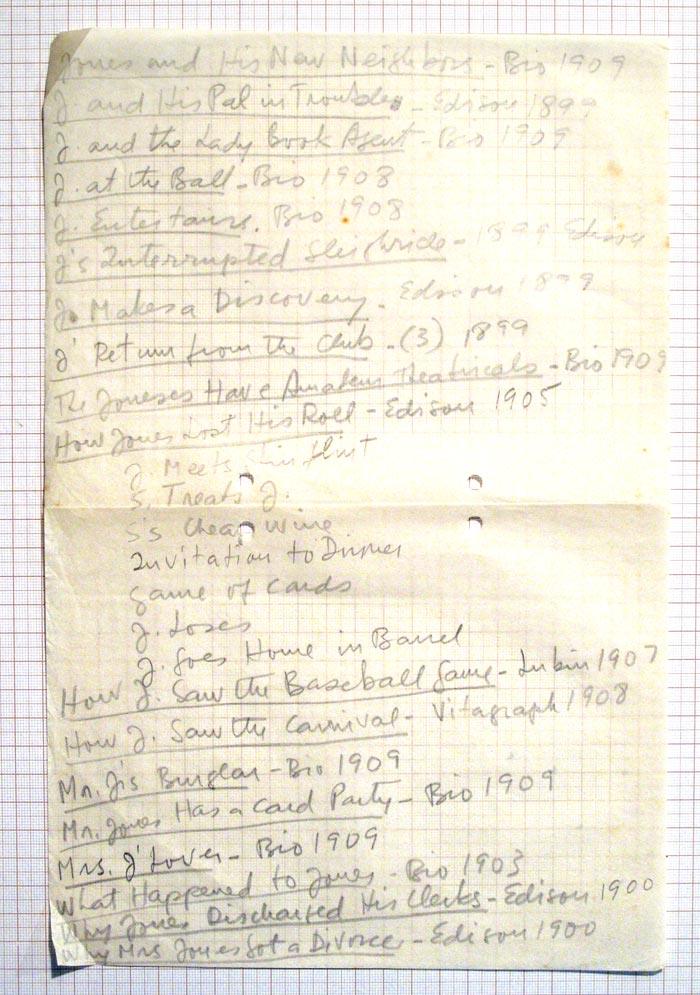 Jones and His New Neighbors - Bio 1909
J. and His Pal in Trouble - Edison 1899
J. and the Lady Book Agent - Bio 1909
J. at the Ball - Bio 1908
J. Entertains. Bio 1908
J's Interrupted Sleighride - 1899 Edison
J. Makes a Discovery - Edison 1899
J' Return from the Club - (3) 1899
The Joneses Have Amateur Theatricals - Bio 1909
How Jones Lost His Roll - Edison 1905
J. Meets Skinflint
S. Treats J.
S's Cheap Wine
Invitation to Dinner
Game of Cards
J. Loses
J. Goes Home in Barrel
How J. Saw the Baseball Game - Lubin 1907
How J. Saw the Carnival - Vitagraph 1908
Mr. J's Burglar - Bio 1909
Mr. Jones Has a Card Party - Bio 1909
Mrs. J' Lover - Bio 1909
What Happened to Jones - Bio 1903
Why Jones Discharged His Clerks - Edison 1900
Why Mrs Jones Got a Divorce - Edison 1900